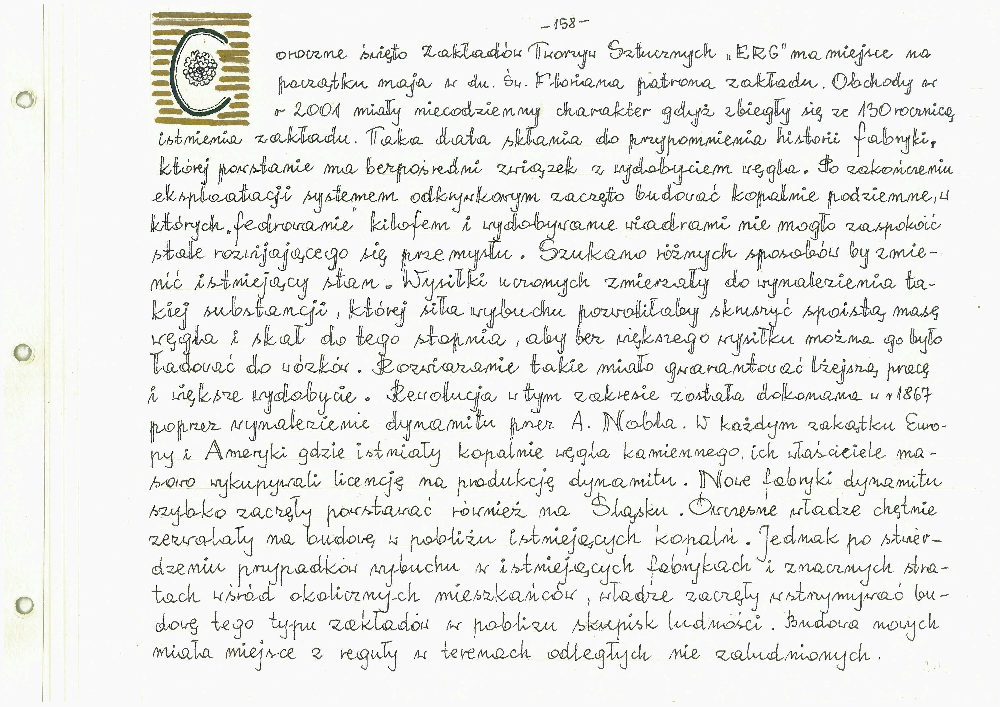 -158-
Coroczne święto Zakładów Tworzyw Sztucznych „ERG" ma miejsce na
początku maja w dn. Św. Floriana patrona zakładu. Obchody w
r 2001 miały niecodzienny charakter gdyż zbiegły się ze 130 rocznicą
istnienia zakładu. Taka data skłania do przypomnienia historii fabryki,
której powstanie ma bezpośredni związek z wydobyciem węgla. Po zakończeniu
eksploatacji systemem odkrywkowym zaczęto budować kopalnie podziemne, w
których „fedrowanie" kilofem i wydobywanie wiadrami nie mogło zaspokoić
stale rozwijającego się przemysłu. Szukano różnych sposobów by zmie-
nić istniejący stan. Wysiłki uczonych zmierzały do wynalezienia ta-
kiej substancji, której siła wybuchu pozwoliłaby skruszyć spoistą masę
węgla i skał do tego stopnia, aby bez większego wysiłku można go było
ładować do wózków. Rozwiązanie takie miało gwarantować lżejszą pracę
i większe wydobycie. Rewolucja w tym zakresie została dokonana w r 1867
poprzez wynalezienie dynamitu przez A. Nobla. W każdym zakątku Euro-
py i Ameryki gdzie istniały kopalnie węgla kamiennego, ich właściciele ma-
sowo wykupywali licencję na produkcję dynamitu. Nowe fabryki dynamitu
szybko zaczęły powstawać również na Śląsku. Ówczesne władze chętnie
zezwalały na budowę w pobliżu istniejących kopalń. Jednak po stwier-
dzeniu przypadków wybuchu w istniejących fabrykach i znacznych stra-
tach wśród okolicznych mieszkańców, władze zaczęły wstrzymywać bu-
dowę tego typu zakładów w pobliżu skupisk ludności. Budowa nowych
miała miejsce z reguły w terenach odległych nie zaludnionych.